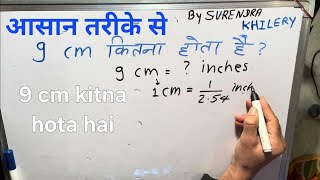 आसान तरीके से
By SURENDRA
KHILERY
9 cm कितना होता है ?
9 cm = ? inches
1 cm = 1/2.54 inch
9 cm kitna
hota hai